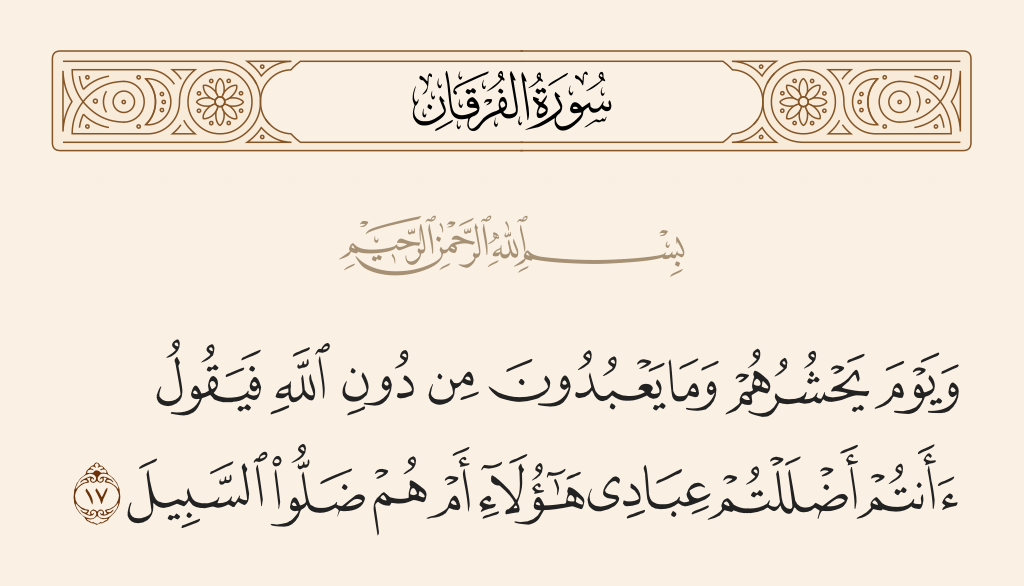 سُورَةُ الفُرْقَانِ
بِسْمِ ٱللَّهِ ٱلرَّحْمَٰنِ ٱلرَّحِيمِ
وَيَوْمَ يَحْشُرُهُمْ وَمَا يَعْبُدُونَ مِن دُونِ ٱللَّهِ فَيَقُولُ
ءَأَنتُمْ أَضْلَلْتُمْ عِبَادِى هَٰٓؤُلَآءِ أَمْ هُمْ ضَلُّوا۟ ٱلسَّبِيلَ ١٧